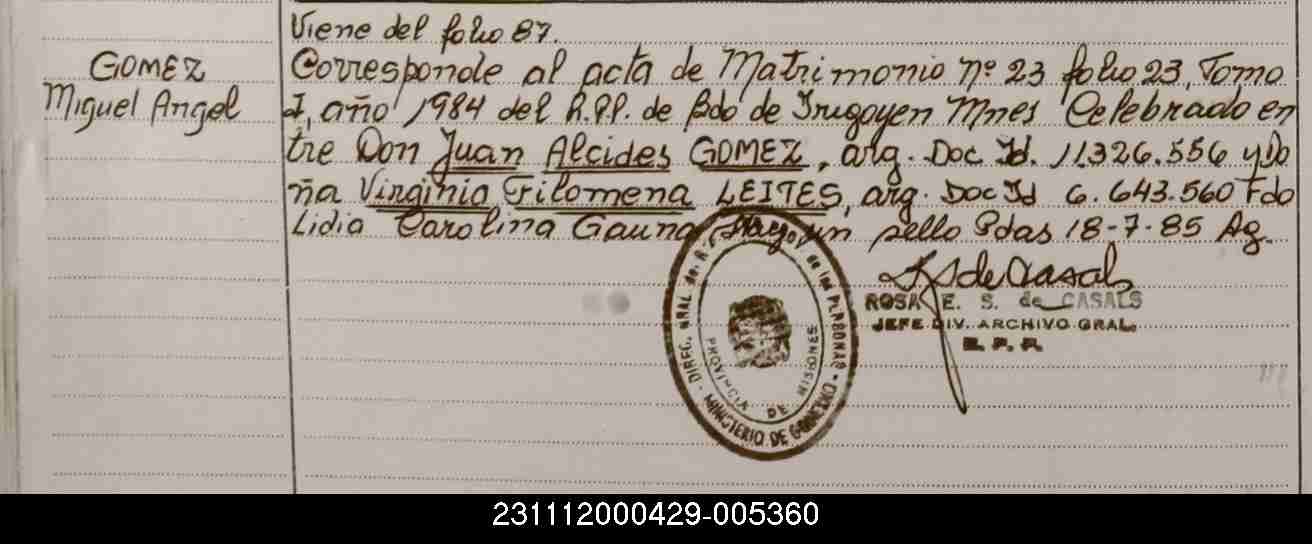 Viene del folio 87.
GOMEZ
Miguel Angel
Corresponde al acta de Matrimonio Nº 23 folio 23, Tomo
I, año 1984 del R.P.P. de Bdo de Irugoyen Mnes Celebrado en
tre Don Juan Alcides GOMEZ, arg. Doc Id. 11.326.556 y Do
ña Virginia Filomena LEITES, arg. Doc Id 6.643.560 Fdo
Lidia Carolina Gauna Hay un sello Pdas 18-7-85 Ag.
ROSA E. S. de CASALS
JEFE DIV. ARCHIVO GRAL.
R. P. P.
DIREC. GRAL de R. de las PERSONAS
MINISTERIO DE GOBIERNO
PROVINCIA DE MISIONES
231112000429-005360